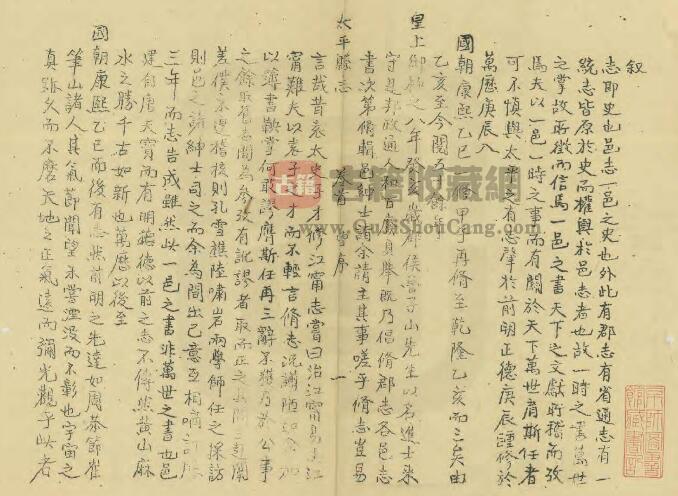 叙
志即史也邑志一邑之史也外此有郡志有省通志有一
統志皆原於史而權輿於邑志者也故一時之書萬世
之掌故所徵而信焉一邑之書天下之文獻所稽而攷
焉夫以一邑一時之事而有關於天下萬世肩斯任者
可不慎與太平之有志肇於前明正德庚辰踵修於
萬歷庚辰入
國朝康熙乙巳 修甲子再脩至乾隆乙亥而三矣由
乙亥至今閱五 餘年
皇上御極之八年癸亥 郡侯魯子山先生以名進士來
守是邦政通人和百廢具舉既乃倡脩郡志各邑志
書次第脩輯邑紳士請余請主其事嗟乎脩志豈易
太平縣志 卷首 曹序 一
言哉昔袁太史 才修江甯志嘗曰治江甯易 江
甯難夫以袁子 才而不輕言脩志況譾陋如
以簿書鞅掌何敢謬膺斯任再三辭不獲乃於公事
之餘取舊志閱為參攷有訛謬者取而正之
差僕不遑稽核則孔雪樵陸嘯岩兩學師任之採訪
則邑之諸紳士司之而余為間出己意互相
三年而志告成雖然此一邑之書非萬世之書也邑
自唐天寶而有明 德以前之志不傳然黃山麻
水之勝千古如新也萬歷以後至
國朝康熙乙巳而後有志然前明之先達如周恭節崔
筆山諸人其氣節聞望未嘗湮沒而不彰也宇宙之
真 久而不磨天地之正氣遠而彌光觀乎此者
古籍
古籍收藏網
www.GuJiShouCang.com